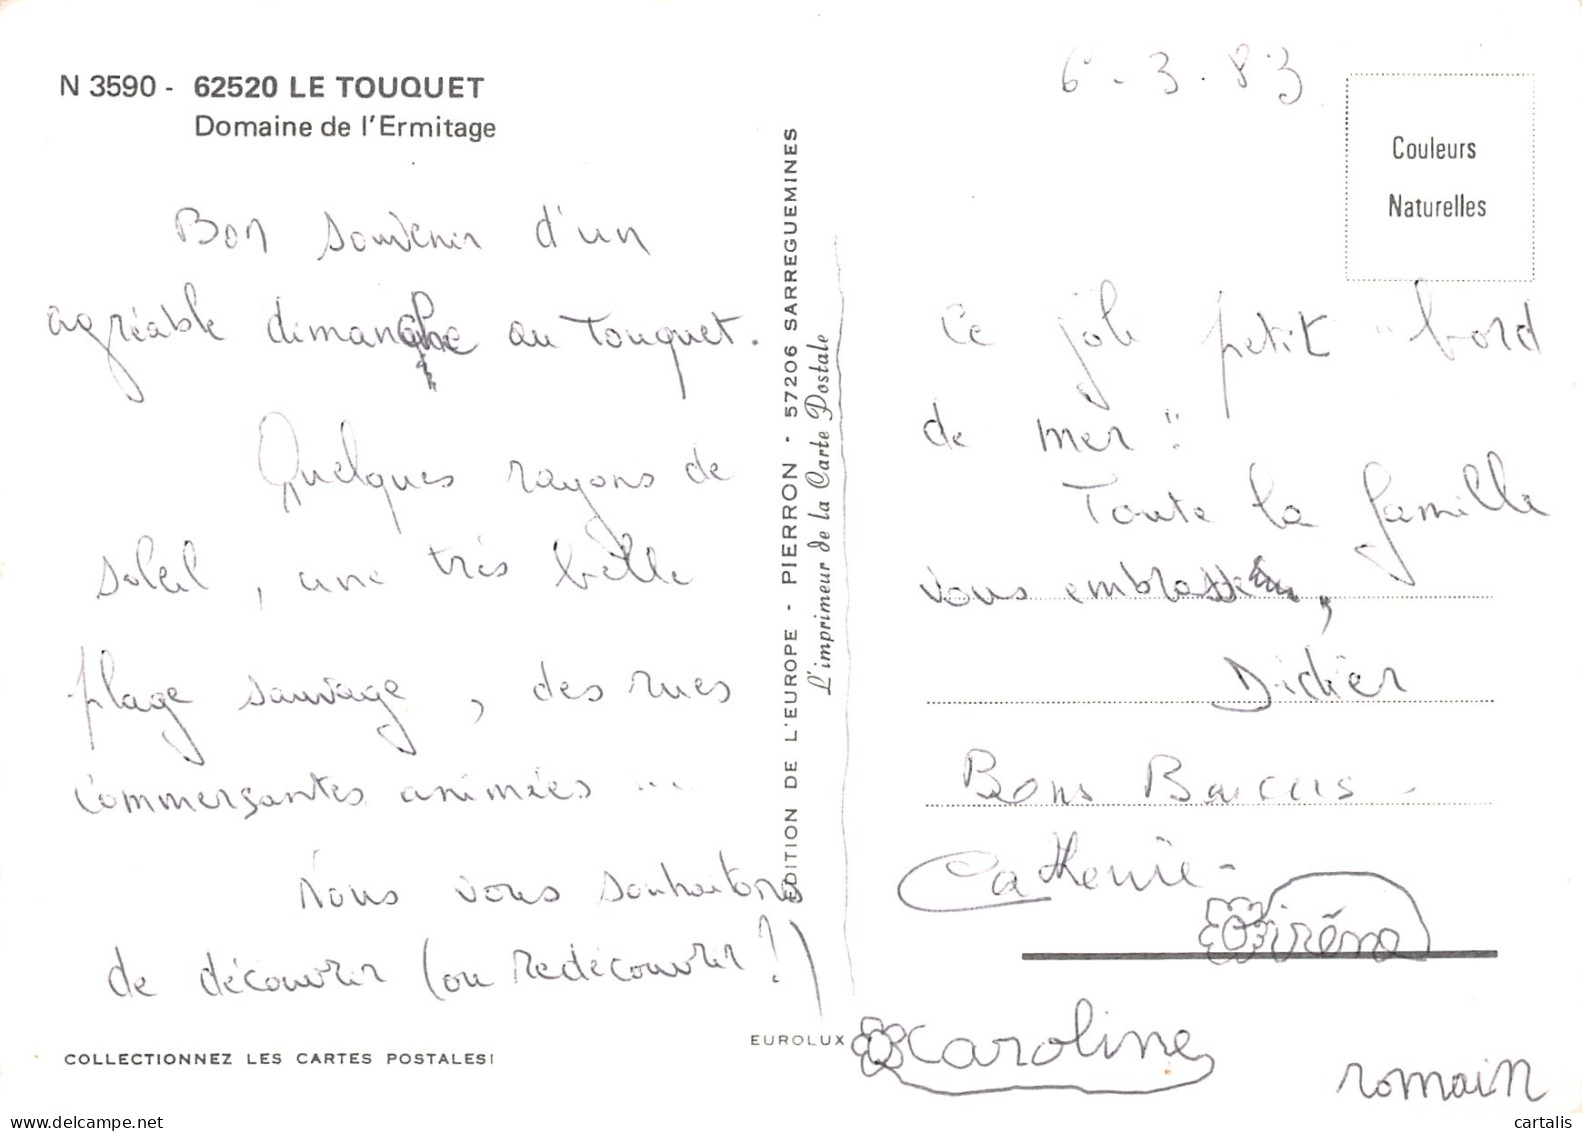 N 3590 - 62520 LE TOUQUET
Domaine de l'Ermitage
Bon souvenir d'un
agréable dimanche au Touquet.
Quelques rayons de
soleil, une très belle
plage sauvage, des rues
commerçantes animées ...
Nous vous souhaitons
de découvrir (ou redécouvrir !)
COLLECTIONNEZ LES CARTES POSTALES!
EDITION DE L'EUROPE - PIERRON - 57206 SARREGUEMINES
L'imprimeur de la Carte Postale
EUROLUX
6 - 3 - 83
Couleurs
Naturelles
Ce joli petit "bord
de mer".
Toute la famille
vous embrasse,
Didier
Bons Baisers.
Catherine -
irène
Caroline
romain
cartalis